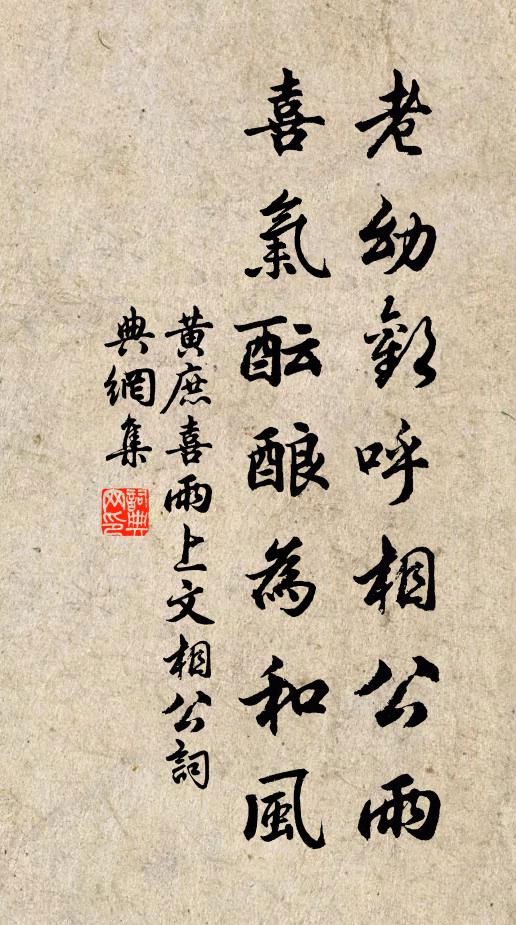 老幼歡呼相公雨
喜氣酝酿為和風
黃庶喜雨上文相公詞
典網集
詞典
网印